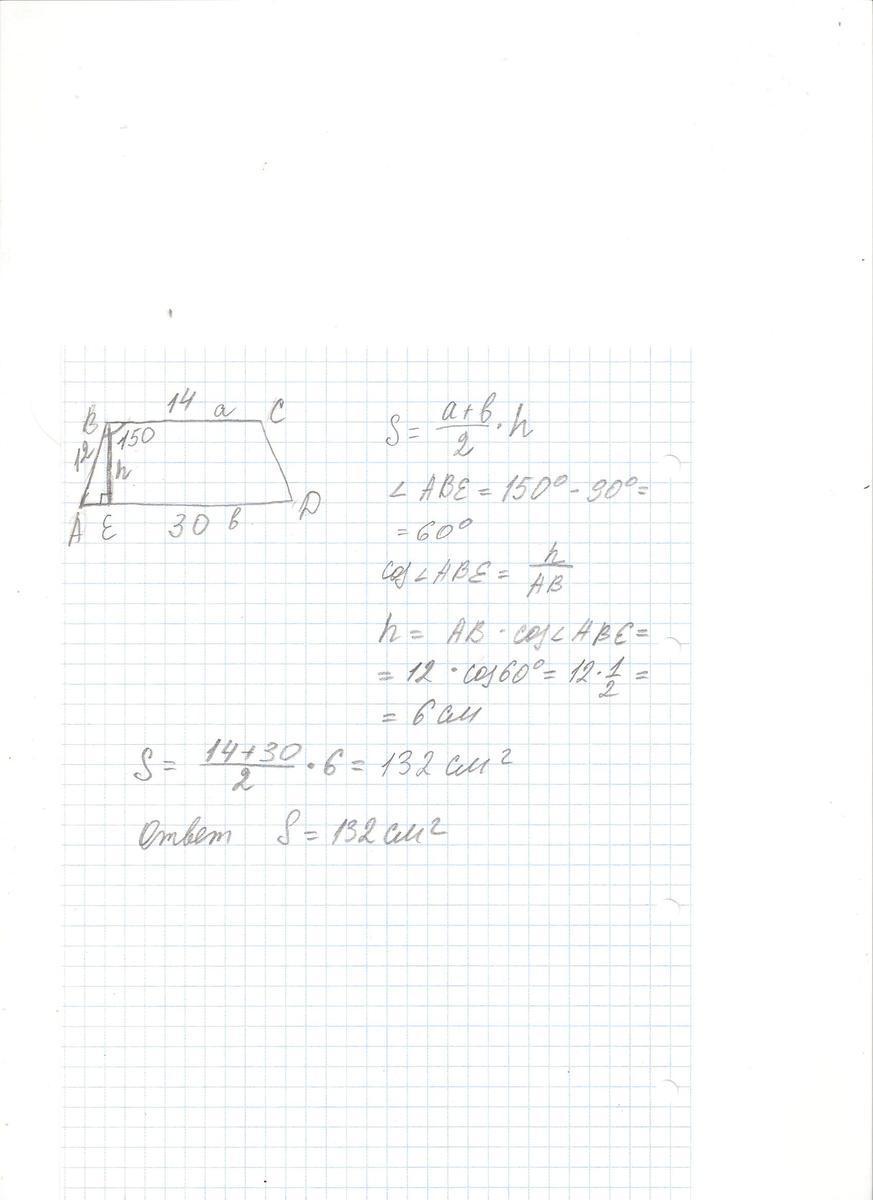 14 a
B C
150
12 h
A E 30 в D
S = (a+в)/2 · h
∠ ABE = 150° - 90° =
= 60°
cos ∠ ABE = h/AB
h = AB · cos ∠ ABE =
= 12 · cos 60° = 12 · 1/2 =
= 6 см
S = (14+30)/2 · 6 = 132 см²
Ответ S = 132 см²